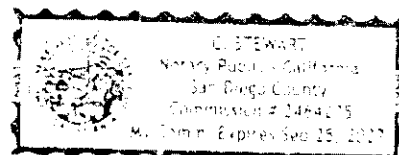 C. STEWART
Notary Public - California
San Diego County
Commission #
My Comm. Expires Sep 15, 2027